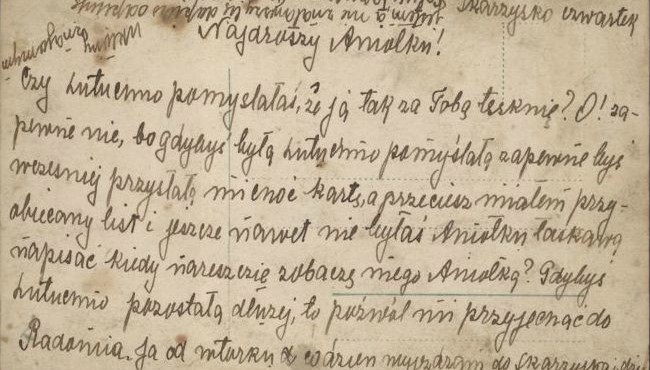 Skarżysko czwartek
Najdroższy Aniołku!
Czy Lutuchno pomyślałaś, że ja tak za Tobą tęsknię? O! za-
pewne nie, bo gdybyś była Lutuchno pomyślała zapewne byś
wcześniej przysłała mi choć kartę, a przeciesz miałem przy-
obiecany list i jeszcze nawet nie byłaś Aniołku łaskawą
napisać kiedy nareszcię zobaczę mego Aniołka? Gdybyś
Lutuchno pozostałą dłużej, to pozwól mi przyjechać do
Radomia. Ja od wtorku codzien wyjeżdżam do Skarżyska i